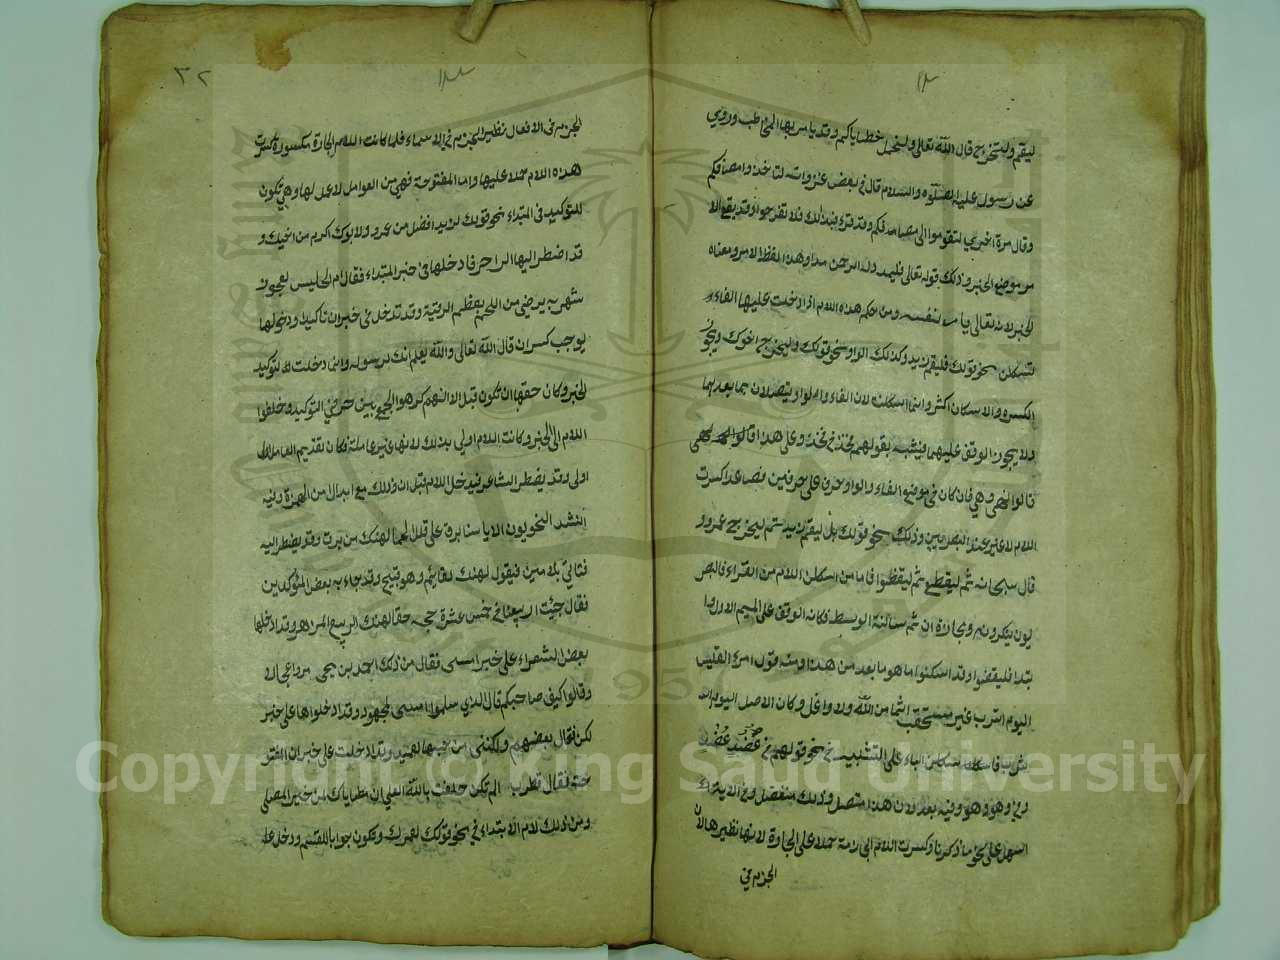 ليقم ولتخرج قال الله تعالى ولنحمل خطاياكم وقد يامر بها المخاطب وروي
عن رسول عليه الصلوه والسلام قال في بعض غزواته لتاخذوا مصافكم
وقال مرة اخرى لتقوموا الى مصافكم وقد قرء فبذلك فلتفرحوا وقد يقع الا
مر موضع الخبر وذلك قوله تعالى فليمدد له الرحمن مدا وهذا لفظ الامر ومعناه
الخبر لانه تعالى لا يامر نفسه ومن حكم هذه اللام اذا دخلت عليها الفاء
لتسكن نحو قولك فليقم زيد وكذلك الواو نحو قولك وليخرج اخوك ويجوز
الكسره والاسكان اكثر وانما اسكنت لان الفاء والواو يتصلان بما بعدهما
ولا يجوز الوقف عليهما فيشبه بقولهم فخذ في فخذ وعلى هذا قالوا
قالوا فهي وهي فان كان في موضع الفاء والواو حرف على حرفين فصاعدا كسرت
اللام لا غير عند البصريين وذلك نحو قولك بل ليقم زيد ثم ليخرج عمرو
قال سبحانه ثم ليقطع ثم ليقضوا فاما من اسكن اللام من القراء فالبص
يون ينكرونه ومجازه ان ثم ساكنة الوسط فكانه الوقف على الميم الاولى
بتدا فليقضوا وقد اسكنوا ما هو ما بعد من هذا ومنه قول امرء القيس
اليوم اشرب غير مستحقب اثما من الله ولا واغل وكان الاصل اليوم
شرب فاسكنه اسكان الباء على التشبيه في نحو قولهم في عضد عضد
وفي وهو وهو وفيه بعد لان هذا متصل وذلك منفصل
اسهل على نحو ما ذكرنا وكسرت اللام الجازمة حملا على الجارة لانها نظيرها لان
الجزم في
٣٢
الجزم في الافعال نظير الجر في الاسماء فلما كانت اللام الجارة مكسورة كسرت
هذه اللام حملا عليها واما المفتوحة فهي من العوامل لا عمل لها وهي تكون
للتوكيد في المبتداء نحو قولك لزيد افضل من عمرو ولابوك اكرم من اخيك و
قد اضطر اليها الراجز فادخلها في خبر المبتداء فقال ام الحليس لعجوز
شهربه يرضى من اللحم بعظم الرقبة وقد تدخل في خبر ان تاكيدا ودخولها
يوجب كسر ان قال الله تعالى والله يعلم انك لرسوله وانما دخلت لتوكيد
الخبر وكان حقها ان تكون قبل الا انهم كرهوا الجمع بين حرفي التوكيد وخلفوا
اللام الى الخبر وكانت اللام اولى بذلك لانها غير عاملة فكان تقديم العامل
اولى وقد يضطر الشاعر فيدخل اللام قبل ان وذلك مع ابدال من الهمزة وفيه
انشد النحويون الا يا سنا برق على قلل الحما لهنك من برق وقد يضطر اليه
فتالى بلامين فيقول لهنك لقايم وهو قبيح وقد جاء به بعض المتوكدين
فقال خمس عشرة حجه حقا لهنك الربيع وقد ادخلها
بعض الشعراء على خبر امسى فقال من ذلك احمد بن يحيى مروا عجالا
وقالوا كيف صاحبكم قال الذي سئلوا امسى لمجهودا وقد ادخلوها على خبر
لكن فقال بعضهم ولكنني من حبها لعميد وقد ادخلت على خبر ان المفتو
حة فقال قطرب الم تكن حلفت بالله العلي ان مطاياك لمن خير المطي
ومن ذلك لام الابتداء في نحو قولك لعمرك وتكون جوابا للقسم ودخل على
Copyright © King Saud University
1957